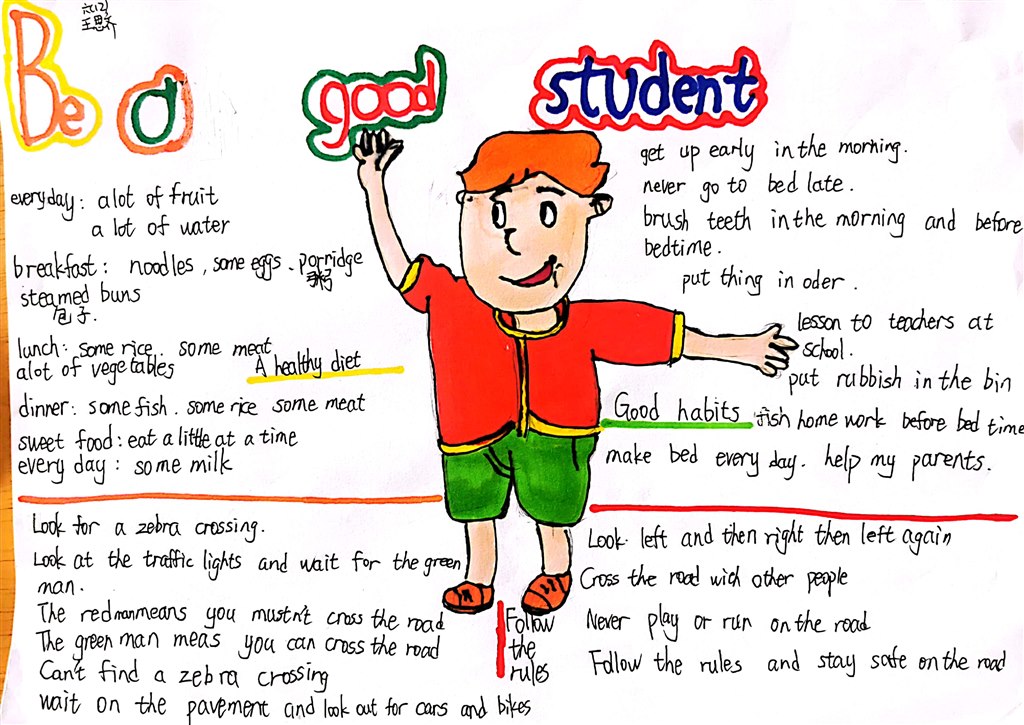 六(2)
王思乔
Be a good student
everyday: alot of fruit
a lot of water
breakfast: noodles, some eggs. porridge
粥
steamed buns
包子.
lunch: some rice. some meat
alot of vegetables
A healthy diet
dinner: some fish. some rice some meat
sweet food: eat a little at a time
every day: some milk
get up early in the morning.
never go to bed late.
brush teeth in the morning and before
bedtime.
put thing in oder.
lesson to teachers at
school.
put rubbish in the bin
Good habits
fish home work before bed time
make bed every day. help my parents.
Look for a zebra crossing.
Look at the traffic lights and wait for the green
man.
The red man means you mustn't cross the road
The green man meas you can cross the road
Can't find a zebra crossing
wait on the pavement and look out for cars and bikes
Follow
the
rules
Look left and then right then left again
Cross the road wich other people
Never play or run on the road
Follow the rules and stay safe on the road